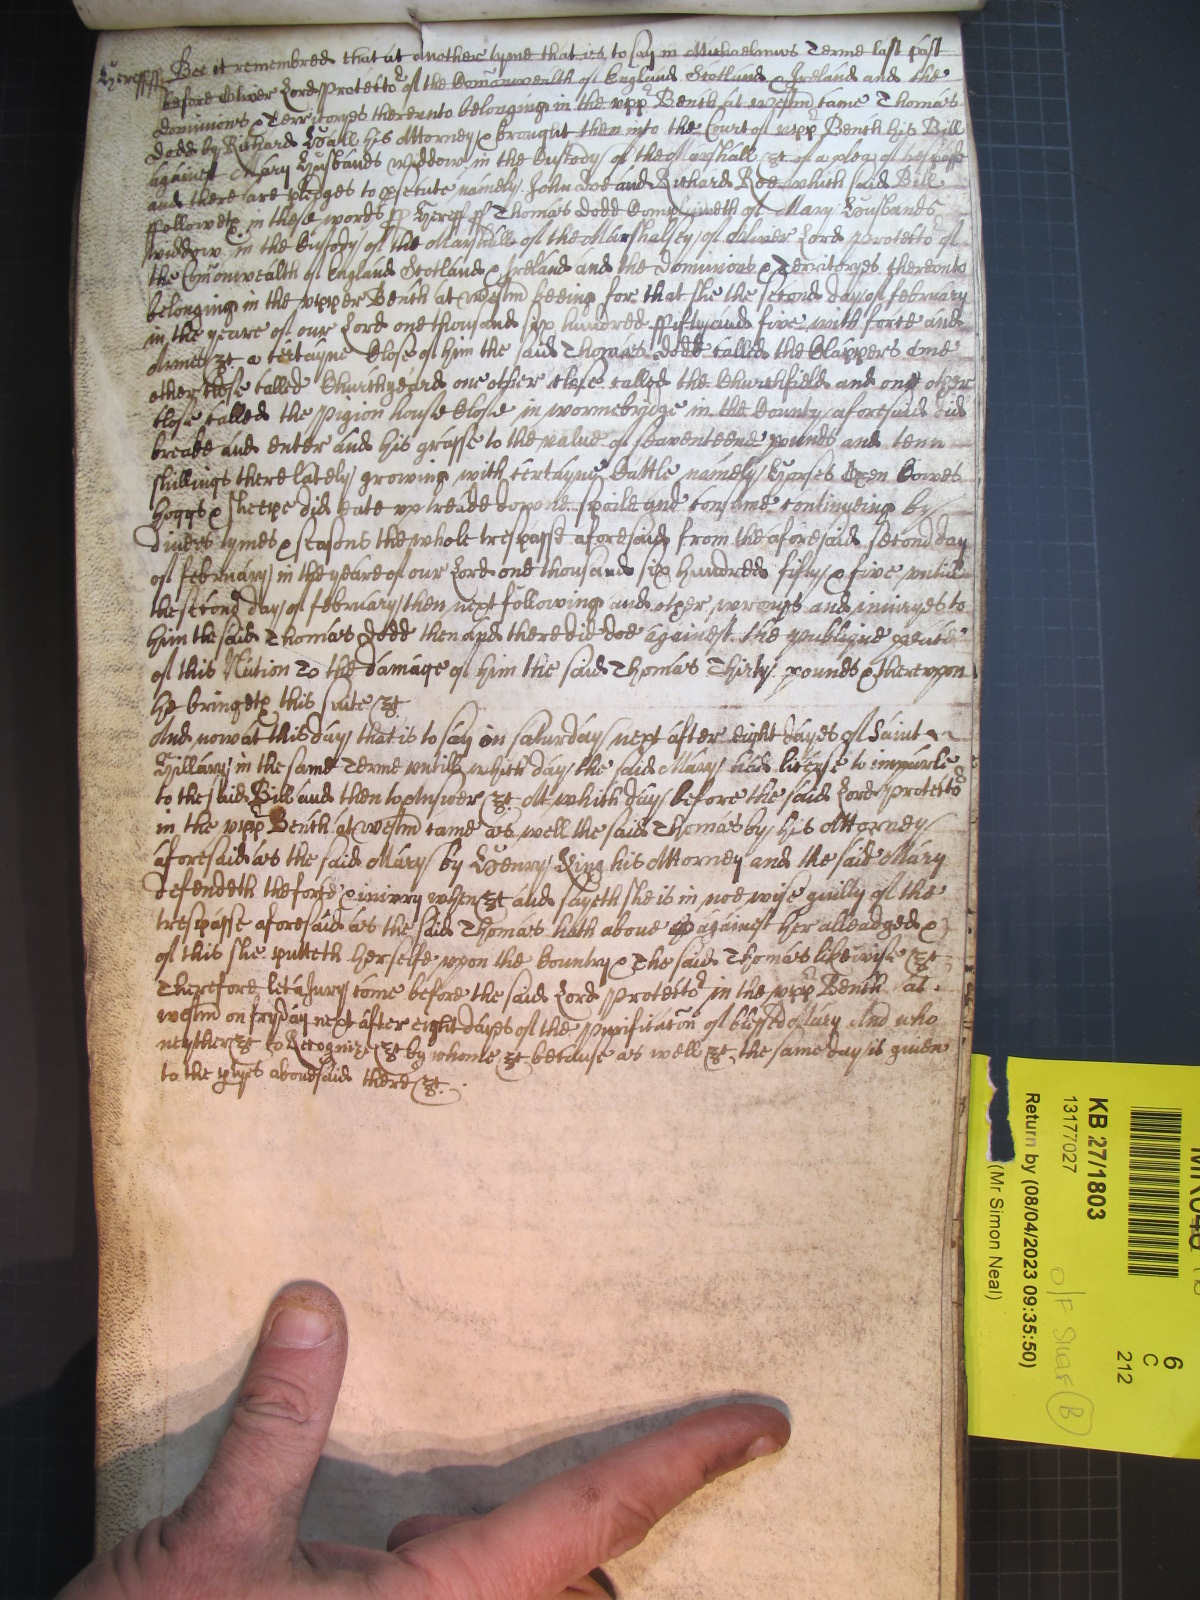 Hereff ss Bee it remembred that at another tyme that is to say in Michaelmas Terme last past
before Oliver Lord Protector of the Comonwealth of England Scotland & Ireland and the
Dominions & Territoryes thereunto belonging in the upp Bench at Westm came Thomas
Dodd by Richard Wall his Attorney & brought then into the Court of upp Bench his Bill
against Mary Husbands widdow in the Custody of the Marshall &c of a plea of trespasse
and there are pledges to psecute namely John Doe and Richard Roe which said Bill
followeth in these words ss Hereff ss Thomas Dodd Complaineth of Mary Husbands
widdow in the Custody of the Marshall of the Marshalsey of Oliver Lord Protector of
the Comonwealth of England Scotland & Ireland and the Dominions & Territoryes thereunto
belonging in the upper Bench at Westm beeing for that she the second day of February
in the yeare of our Lord one thousand six hundred fifty and five with force and
Armes &c a certayne Close of him the said Thomas Dodd called the Clappers one
other close called Churchyard one other close called the Churchfield and one other
close called the Pigion house Close in wormebridge in the County aforesaid did
breake and enter and his grasse to the value of seaventeene pounds and tenn
shillings there lately growing with certayne Cattle namely Horses Oxen Cowes
Hoggs & sheepe did eate up treade downe spoile and consume continueing by
divers tymes & seasons the whole trespasse aforesaid from the aforesaid second day
of February in the yeare of our Lord one thousand six hundred fifty & five untill
the second day of February then next following and other wrongs and iniuryes to
him the said Thomas Dodd then and there did doe against the publique peace
of this Nation To the damage of him the said Thomas Thirty pounds & thereupon
he bringeth this suite &c
And now at this day that is to say on saturday next after eight dayes of Saint
Hillary in the same Terme untill which day the said Mary had license to imparle
to the said Bill and then to Answer &c At which day before the said Lord Protector
in the upp Bench at westm came as well the said Thomas by his Attorney
aforesaid as the said Mary by Henry King his Attorney and the said Mary
defendeth the force & iniury when &c and sayeth she is in noe wise guilty of the
trespasse aforesaid as the said Thomas hath above against her alleadged &
of this she putteth herselfe upon the Country & The said Thomas likewise &c
Therefore let a Jury come before the said Lord Protector in the upp Bench at
westm on fryday next after eight dayes of the purificacon of blessed Mary And who
neyther &c to Recognize &c by whome &c because as well &c the same day is given
to the ptyes abovesaid there &c
MR048
6
C
212
KB 27/1803
13177027
Return by (08/04/2023 09:35:50)
(Mr Simon Neal)
O/F
B